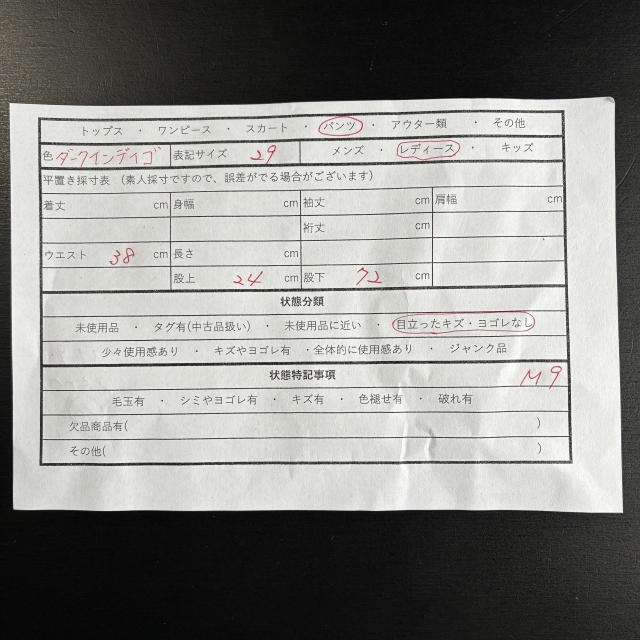 トップス ・ ワンピース ・ スカート ・ パンツ ・ アウター類 ・ その他
色 ダークインディゴ 表記サイズ 29 メンズ ・ レディース ・ キッズ
平置き採寸表 (素人採寸ですので、誤差がでる場合がございます)
着丈 cm 身幅 cm 袖丈 cm 肩幅 cm
裄丈 cm
ウエスト 38 cm 長さ
股上 24 cm 股下 72 cm
状態分類
未使用品 ・ タグ有(中古品扱い) ・ 未使用品に近い ・ 目立ったキズ・ヨゴレなし
少々使用感あり ・ キズやヨゴレ有 ・全体的に使用感あり ・ ジャンク品
状態特記事項 M9
毛玉有 ・ シミやヨゴレ有 ・ キズ有 ・ 色褪せ有 ・ 破れ有
欠品商品有( )
その他( )